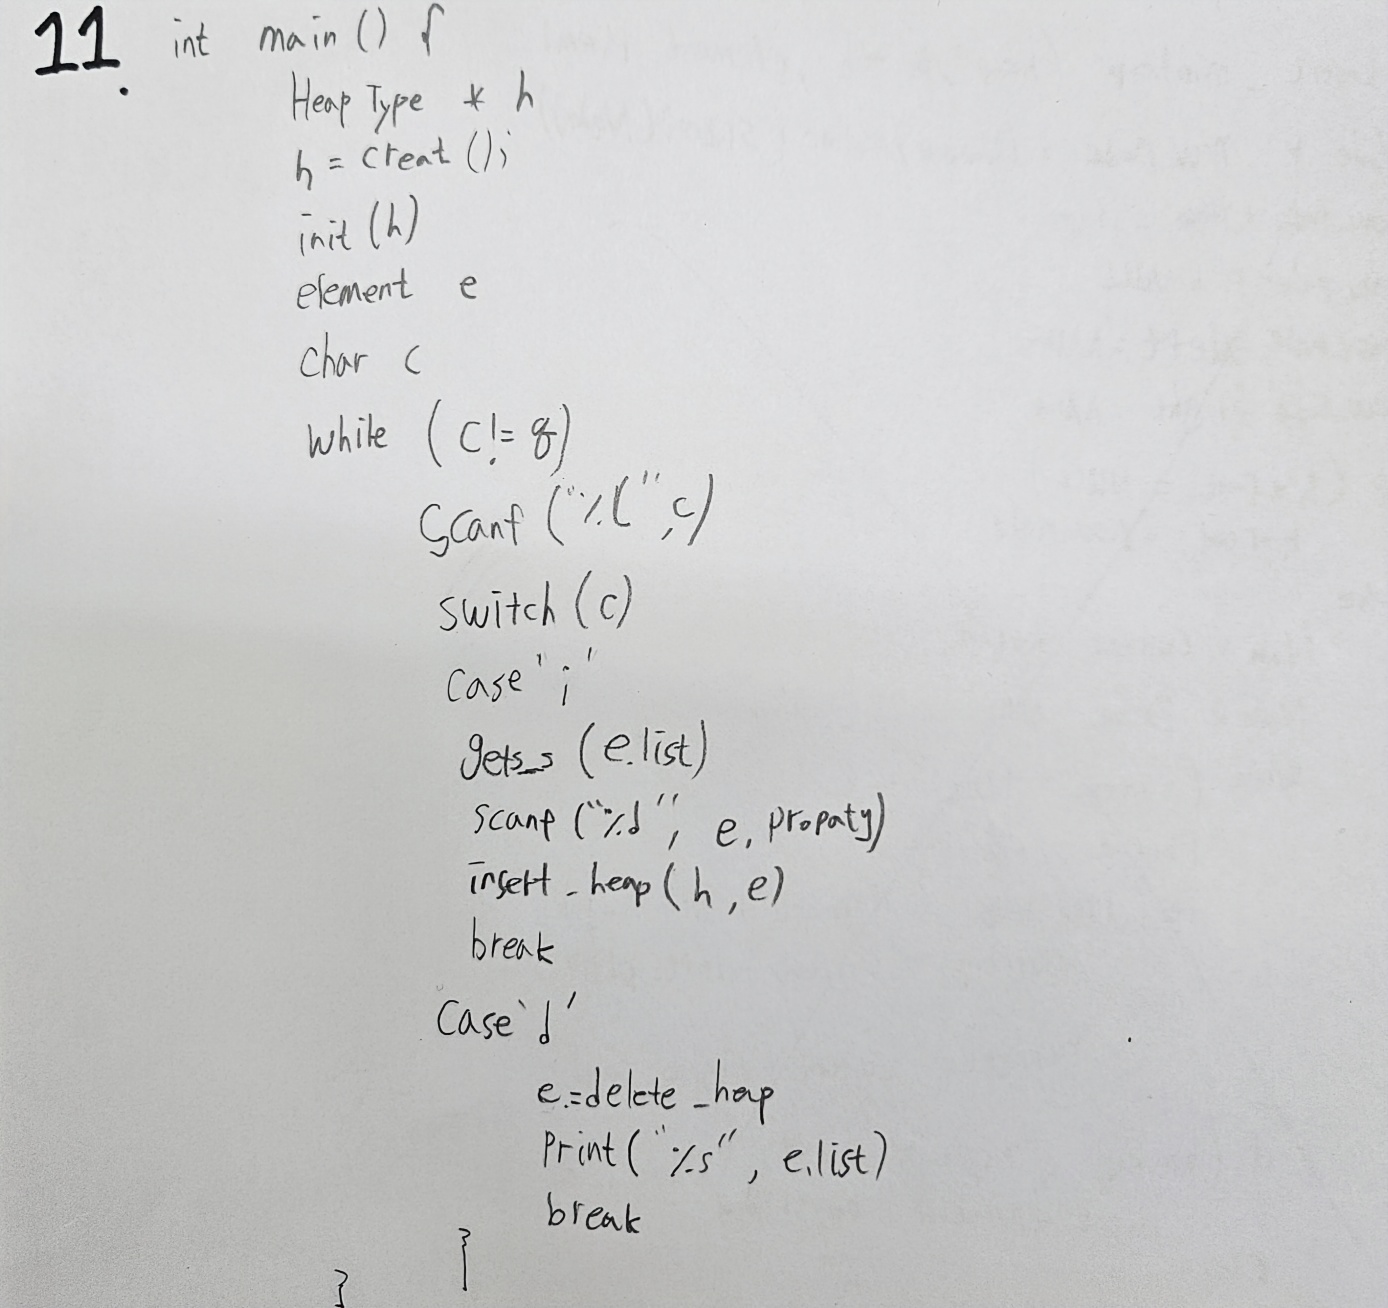 11. int main() {
HeapType * h
h = creat();
init(h)
element e
char c
while (c != q)
scanf("%c", c)
switch(c)
case 'i'
gets_s(e.list)
scanf("%d", e. propaty)
insert_heap(h, e)
break
case 'd'
e.=delete_heap
print("%s", e.list)
break
}
}